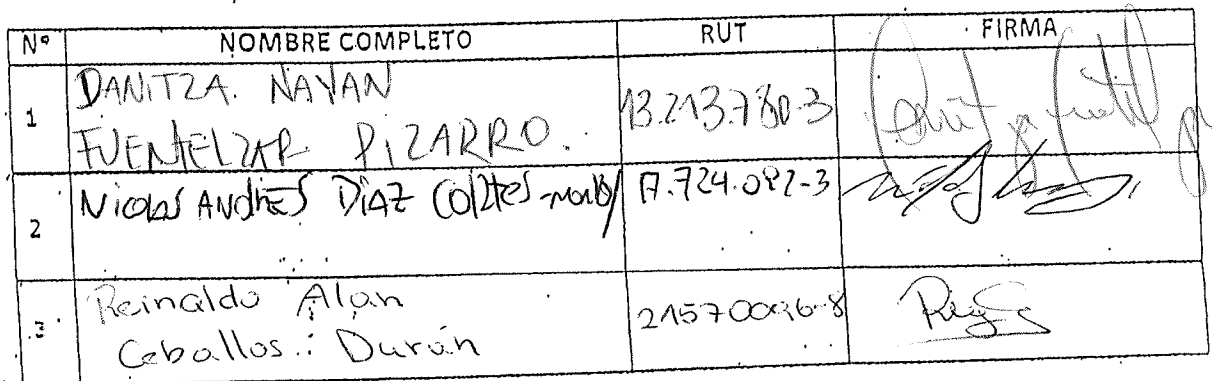 Nº NOMBRE COMPLETO RUT FIRMA
1 DANITZA. NAYAN
FUENTELZAR PIZARRO. 13.213.780-3
2 Nicolas ANDRES DIAZ CORtes 17.724.092-3
3 Reinaldo Alan
Ceballos Durán 21570096-8